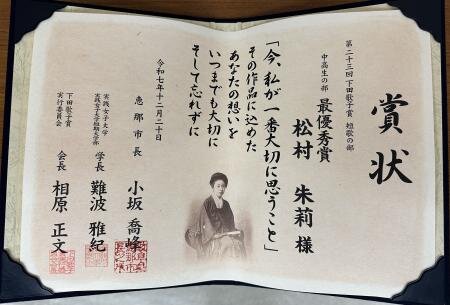 賞状
第二十三回 下田歌子賞 短歌の部
中高生の部
最優秀賞
松村 朱莉 様
「今、私が一番大切に思うこと」
その作品に込めた
あなたの想いを
いつまでも大切に
そして忘れずに
令和七年十二月二十日
恵那市長 小坂 喬峰
実践女子大学
実践女子大学短期大学部
学長 難波 雅紀
下田歌子賞
実行委員会
会長 相原 正文